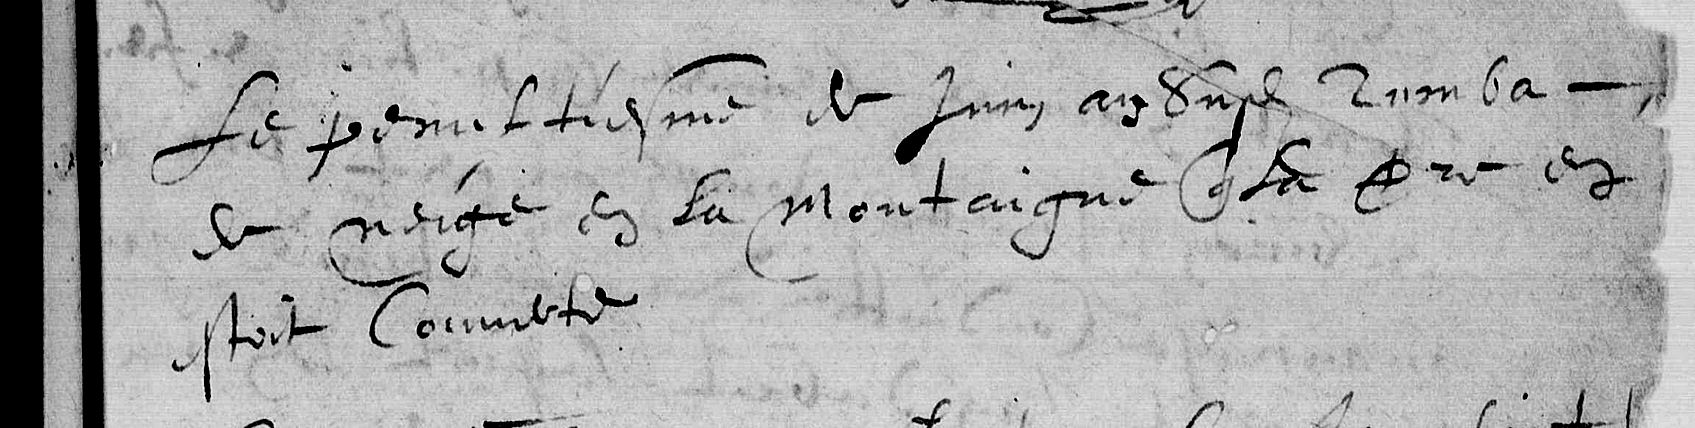 Le penultiesme de Juing aud an tumba
de neige en la montaigne q la tre en
estoit couuerte